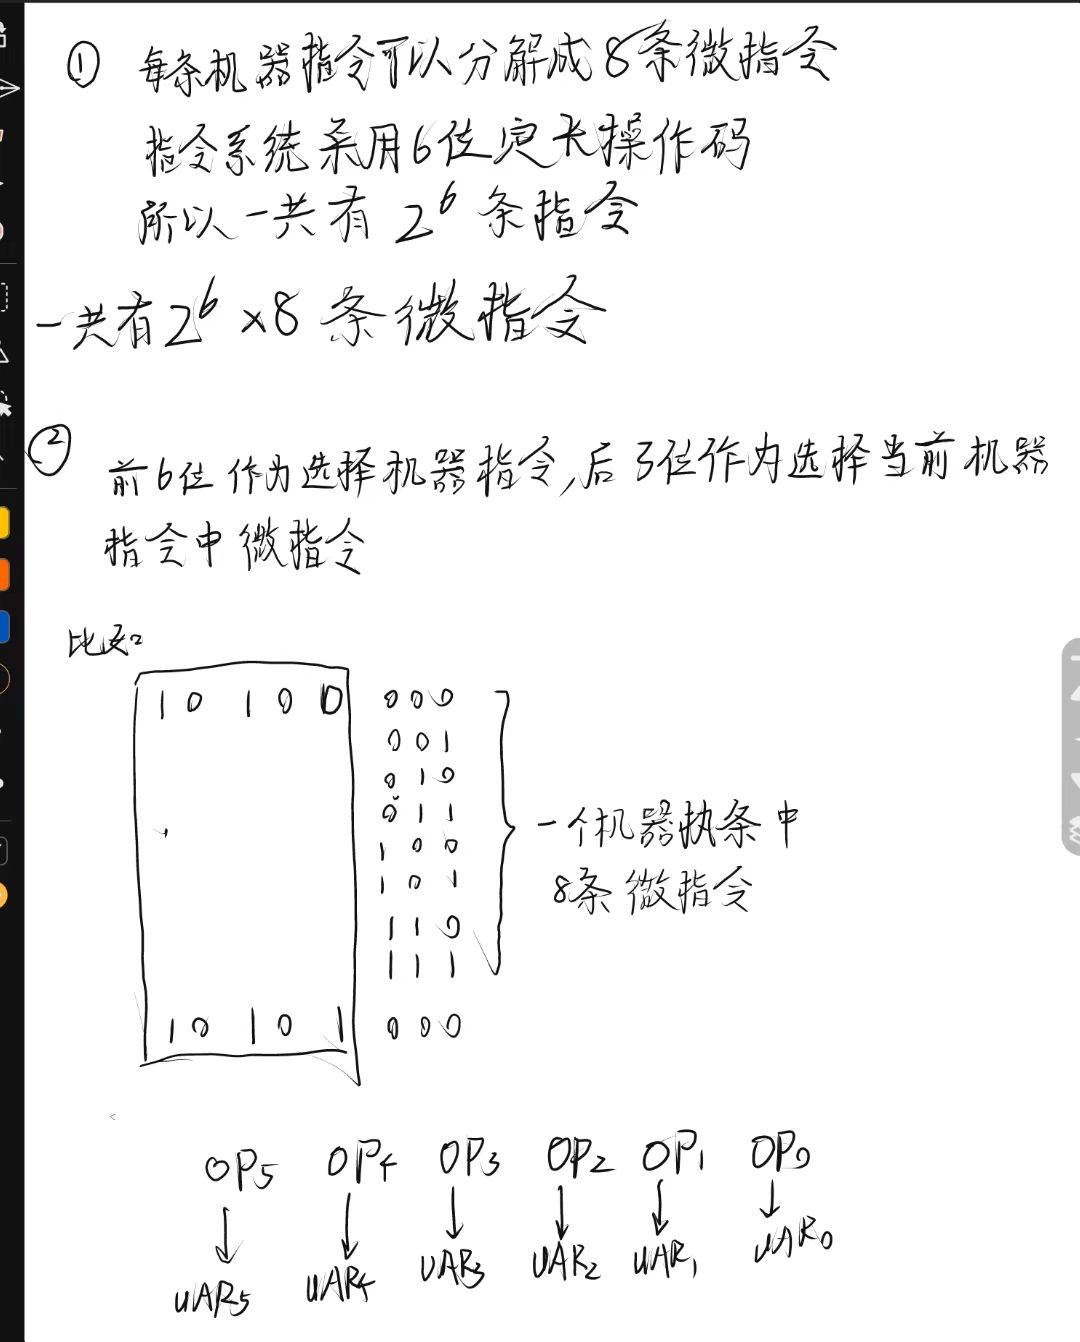 ① 每条机器指令可以分解成8条微指令
指令系统采用6位定长操作码
所以一共有 2⁶ 条指令
一共有2⁶×8 条微指令
② 前6位作为选择机器指令,后3位作为选择当前机器
指令中微指令
比如
1 0 1 0 0 0 0 0
0 0 1
0 1 0
0 1 1
1 0 0
1 0 1
1 1 0
1 1 1
一个机器执条中
8条微指令
1 0 1 0 1 0 0 0
OP5 OP4 OP3 OP2 OP1 OP0
↓ ↓ ↓ ↓ ↓ ↓
UAR5 UAR4 UAR3 UAR2 UAR1 UAR0